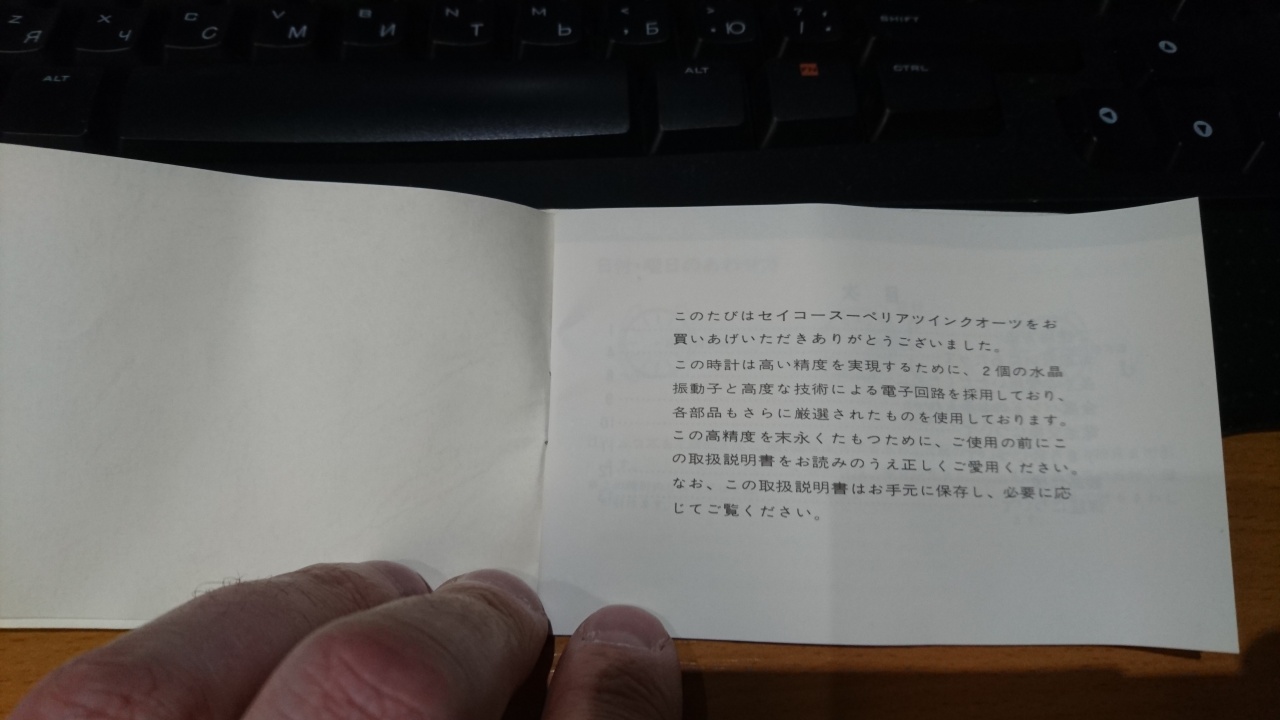 Z Я
X Ч
C С
V М
B И
N Т
M Ь
< , Б
> . Ю
? /
SHIFT
ALT
ALT
CTRL
このたびはセイコースーペリアツインクオーツをお
買いあげいただきありがとうございました。
この時計は高い精度を実現するために、２個の水晶
振動子と高度な技術による電子回路を採用しており、
各部品もさらに厳選されたものを使用しております。
この高精度を末永くたもつために、ご使用の前にこ
の取扱説明書をお読みのうえ正しくご愛用ください。
なお、この取扱説明書はお手元に保存し、必要に応
じてご覧ください。